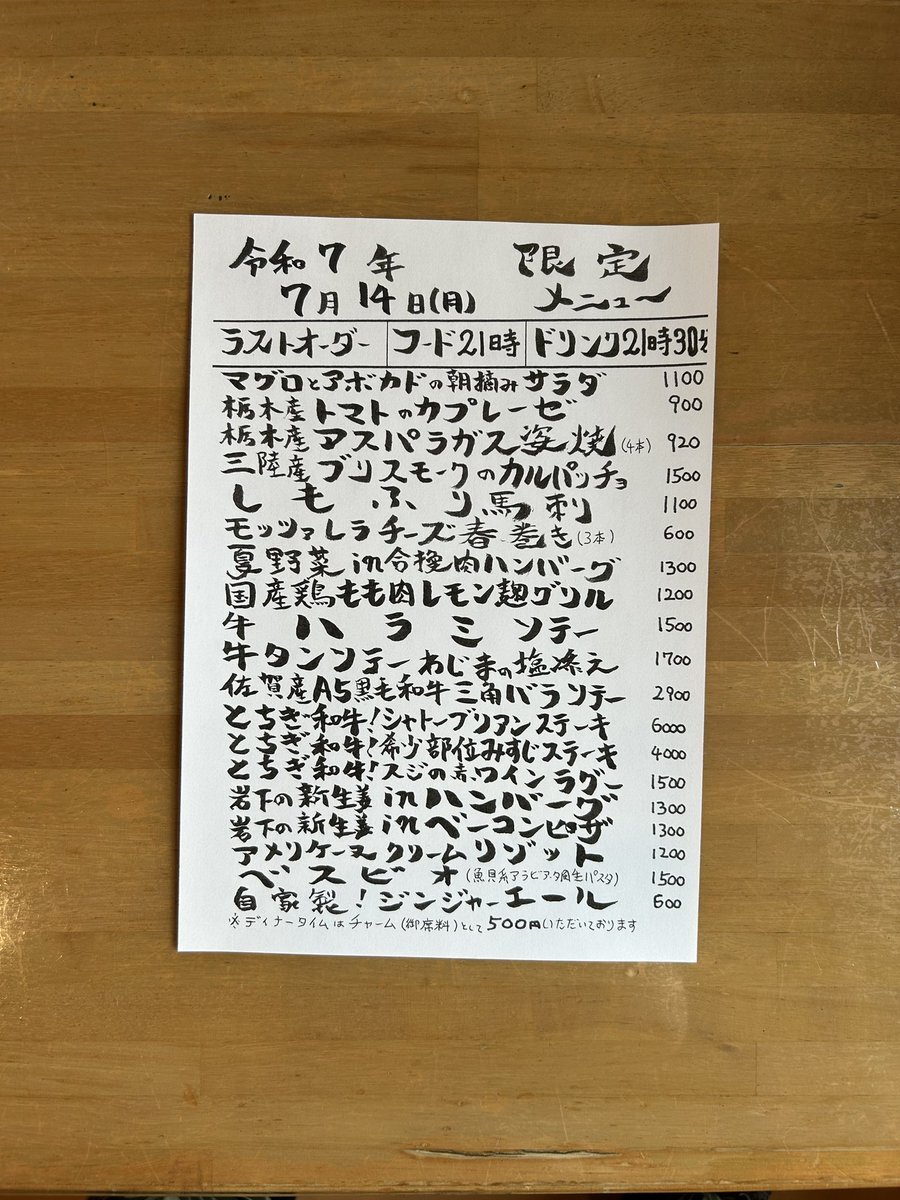 令和7年 限定
7月14日(月) メニュー
ラストオーダー フード21時 ドリンク21時30分
マグロとアボカドの朝摘みサラダ 1100
栃木産トマトのカプレーゼ 900
栃木産アスパラガス姿焼(4本) 920
三陸産ブリスモークのカルパッチョ 1500
しもふり馬刺 1100
モッツァレラチーズ春巻き(3本) 600
夏野菜in合挽肉ハンバーグ 1300
国産鶏もも肉レモン麹グリル 1200
牛ハラミソテー 1500
牛タンソテーわじまの塩添え 1700
佐賀産A5黒毛和牛三角バラソテー 2900
とちぎ和牛!シャトーブリアンステーキ 6000
とちぎ和牛!希少部位みすじステーキ 4000
とちぎ和牛!スジの赤ワインラグー 1500
岩下の新生姜inハンバーグ 1300
岩下の新生姜inベーコンピザ 1300
アメリケーヌクリームリゾット 1200
ベスビオ(魚貝系アラビアータ風生パスタ) 1500
自家製!ジンジャーエール 600
※ディナータイムはチャーム(御席料)として500円いただいております